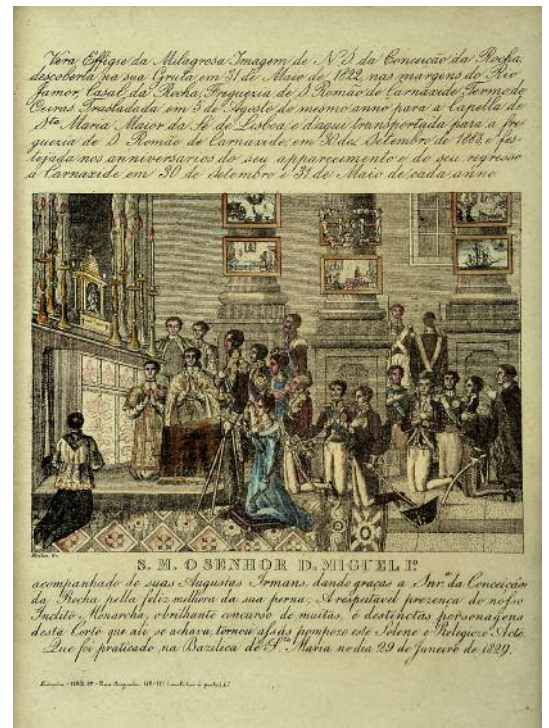 Vera Effigie da Milagrosa Imagem de N. S. da Conceição da Rocha,
descoberta na sua Gruta em 31 de Maio de 1822, nas margens do Rio
Jamor, Casal da Rocha, Freguezia de S. Romão de Carnaxide, Termo de
Oeiras Trasladada em 5 de Agosto do mesmo anno para a Capella de
Sta. Maria Maior da Sé de Lisboa, e d'aqui transportada para a fre
guezia de S. Romão de Carnaxide, em 30 de Setembro de 1883 e fes-
tejada nos anniversarios do seu apparecimento e do seu regresso
a Carnaxide em 30 de Setembro e 31 de Maio de cada anno.
S. M. O SENHOR D. MIGUEL Iº
acompanhado de suas Augustas Irmans, dando graças a Snr.ª da Conceição
da Rocha pella feliz melhora da sua perna; A respeitavel prezença do nosso
Inclito Monarcha, o brilhante concurso de muitas, é destinctas personagens
desta Corte que ali se achava, tornou assás pompozo este Solene e Relegiozo Acto.
Que foi praticado na Bazilica de Sta. Maria no dia 29 de Janeiro de 1829.